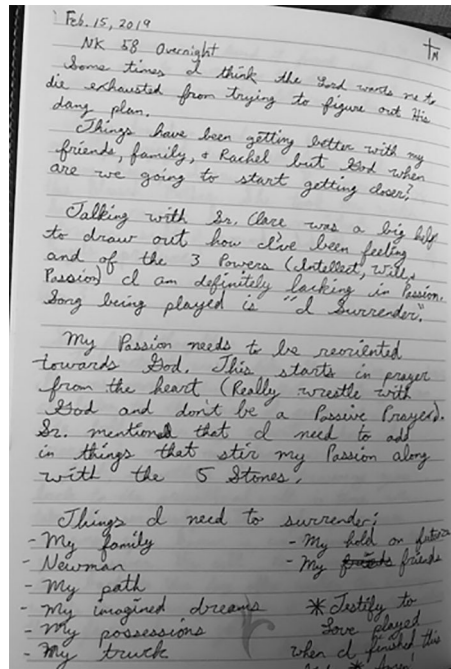 Feb. 15, 2019
NK 58 Overnight
Some times I think the Lord wants me to
die exhausted from trying to figure out His
dang plan.
Things have been getting better with my
friends, family, + Rachel but God when
are we going to start getting closer?
Talking with Sr. Clare was a big help
to draw out how I've been feeling
and of the 3 Powers (Intellect, Will,
Passion) I am definitely lacking in Passion.
Song being played is "I Surrender".
My Passion needs to be reoriented
towards God. This starts in prayer
from the heart (Really wrestle with
God and don't be a Passive Prayer).
Sr. mentioned that I need to add
in things that stir my Passion along
with the 5 Stones.
Things I need to surrender:
- My family
- Newman
- My path
- My imagined dreams
- My possessions
- My truck
- My hold on future
- My friends friends
* Testify to
Love played
when I finished this